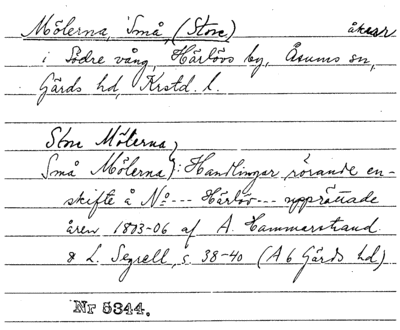 Mölerna, Små, (Stora) åkrar
i Södre vång, Härlövs by, Åsums sn,
Gärds hd, Krstd. l.
Stora Mölerna,
Små Mölerna): Handlingar rörande en-
skifte å No --- Härlöv --- upprättade
åren 1803-06 af A. Hammarstrand
& L. Segrell, s. 38-40 (A 6 Gärds hd)
Nr 5344.